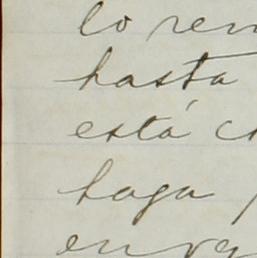 lo ren
hasta
está
haga